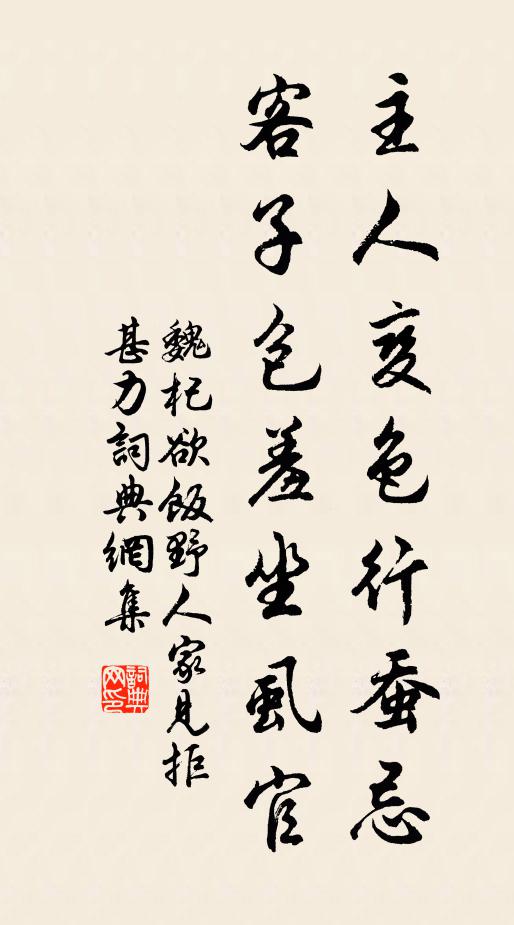 主人变色行蚕忌
客子包羞坐虱官
魏杞欲饭野人家见拒
甚力詞典網集
詞典网印